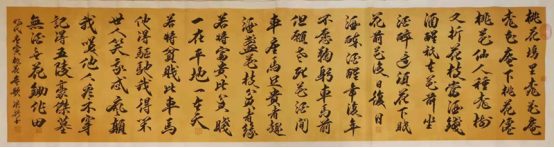 桃花塢里桃花庵
桃花庵下桃花仙
桃花仙人種桃樹
又折花枝當酒錢
酒醒只在花前坐
酒醉還須花下眠
花前花後日復日
酒醉酒醒年復年
不願鞠躬車馬前
但願老死花酒間
車塵馬足貴者趣
酒盞花枝貧者緣
若將富貴比貧賤
一在平地一在天
若將貧賤比車馬
他得驅馳我得閑
世人笑我忒瘋顛
我笑他人看不穿
記得五陵豪傑墓
無酒無花鋤作田
明代唐寅桃花庵歌